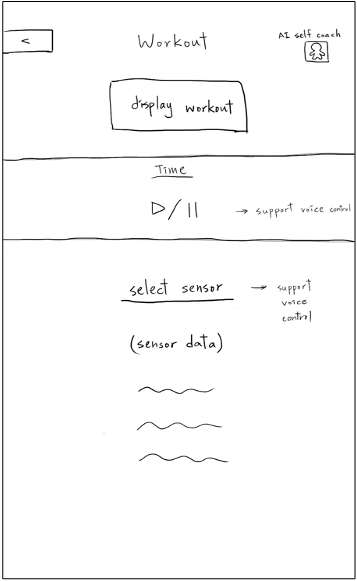 <
Workout
AI self coach
display workout
Time
▷/||
→ support voice control
select sensor
→ support
voice
control
(sensor data)